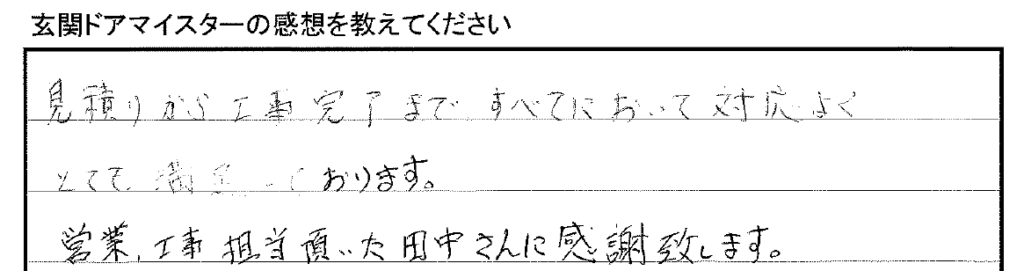 玄関ドアマイスターの感想を教えてください
見積りから工事完了まですべてにおいて対応よく
とても満足しております。
営業、工事担当頂いた田中さんに感謝致します。